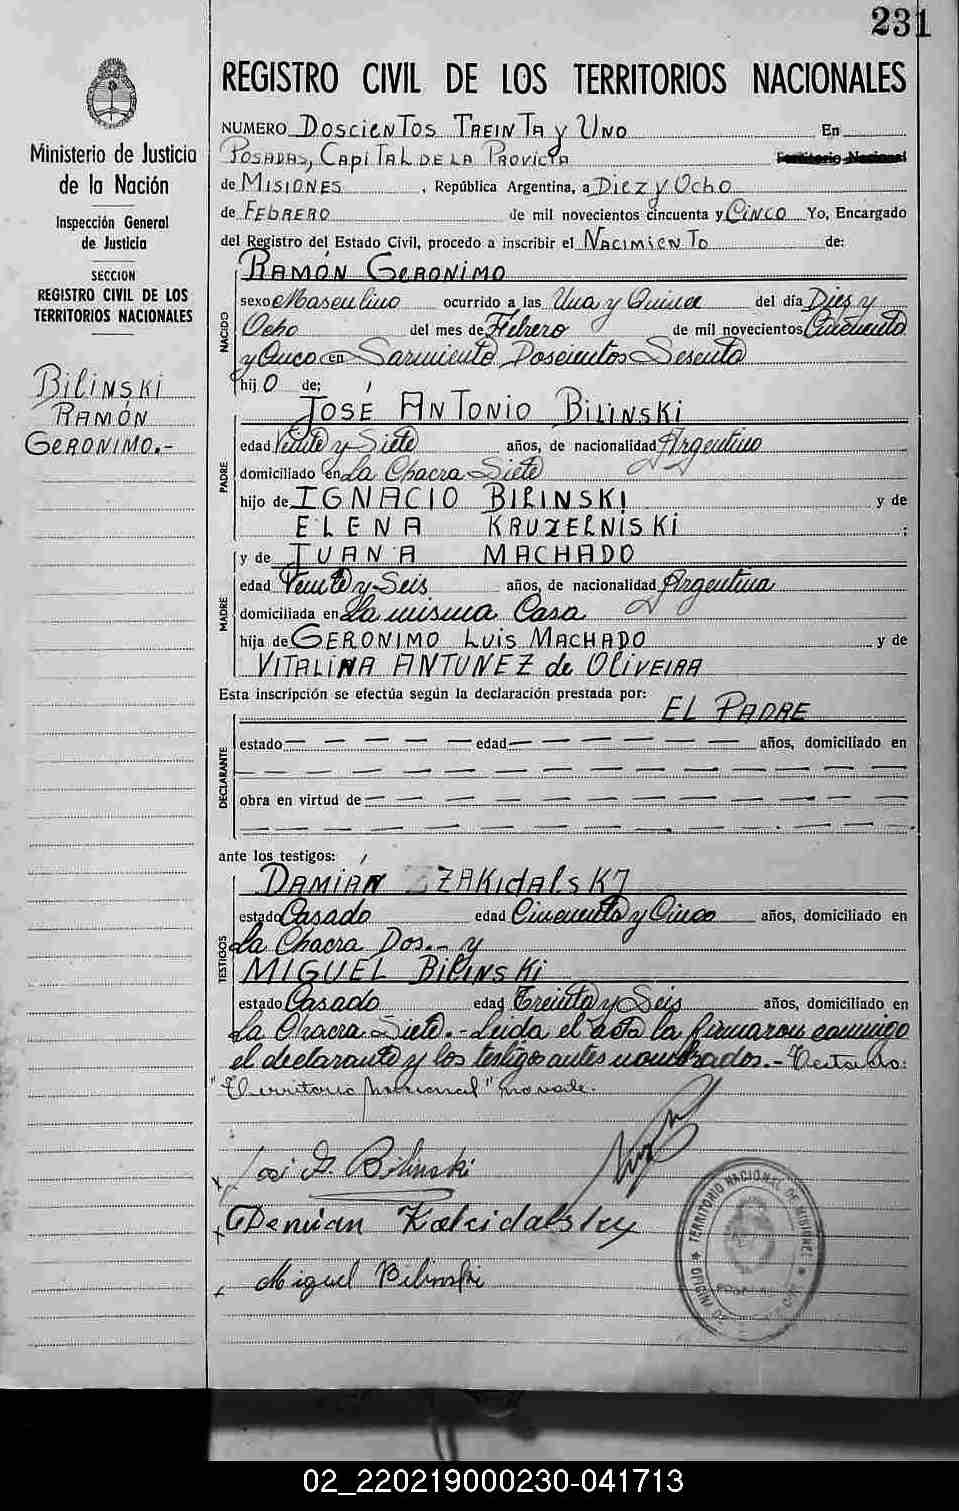 231
Ministerio de Justicia
de la Nación
Inspección General
de Justicia
SECCION
REGISTRO CIVIL DE LOS
TERRITORIOS NACIONALES
BILINSKI
RAMÓN
GERONIMO.-
REGISTRO CIVIL DE LOS TERRITORIOS NACIONALES
NUMERO DOSCIENTOS TREINTA y UNO En
POSADAS, CAPITAL DE LA PROVICIA Territorio Nacional
de MISIONES, República Argentina, a DIEZ y OCHO
de FEBRERO de mil novecientos cincuenta y CINCO Yo, Encargado
del Registro del Estado Civil, procedo a inscribir el NACIMIENTO de:
NACIDO
RAMÓN GERONIMO
sexo Masculino ocurrido a las Una y Quince del día Dies y
Ocho del mes de Febrero de mil novecientos Cincuenta
y Cinco en Sarmiento Doscientos Sesenta
hijO de:
PADRE
JOSE ANTONIO BILINSKI
edad Veinte y Siete años, de nacionalidad Argentino
domiciliado en La Chacra Siete
hijo de IGNACIO BILINSKI y de
ELENA KRUZELNISKI;
MADRE
y de JUANA MACHADO
edad Veinte y Seis años, de nacionalidad Argentina
domiciliada en La misma Casa
hija de GERONIMO LUIS MACHADO y de
VITALINA ANTUNEZ de OLIVEIRA
Esta inscripción se efectúa según la declaración prestada por:
EL PADRE
DECLARANTE
estado — — — — — edad — — — — — — años, domiciliado en
— — — — — — — — — — — — — — —
obra en virtud de — — — — — — — — — — — —
— — — — — — — — — — — — — — —
ante los testigos:
TESTIGOS
DAMIAN ZAKIDALSKY
estado Casado edad Cincuenta y Cinco años, domiciliado en
La Chacra Dos.- y
MIGUEL BILINSKI
estado Casado edad Treinta y Seis años, domiciliado en
La Chacra Siete.- Leida el acta la firmaron conmigo
el declarante y los testigos antes nombrados.- Testado:
"Territorio Nacional" no vale.
José A. Bilinski
Demian Zakidalsky
Miguel Bilinski
TERRITORIO NACIONAL DE MISIONES
02_220219000230-041713